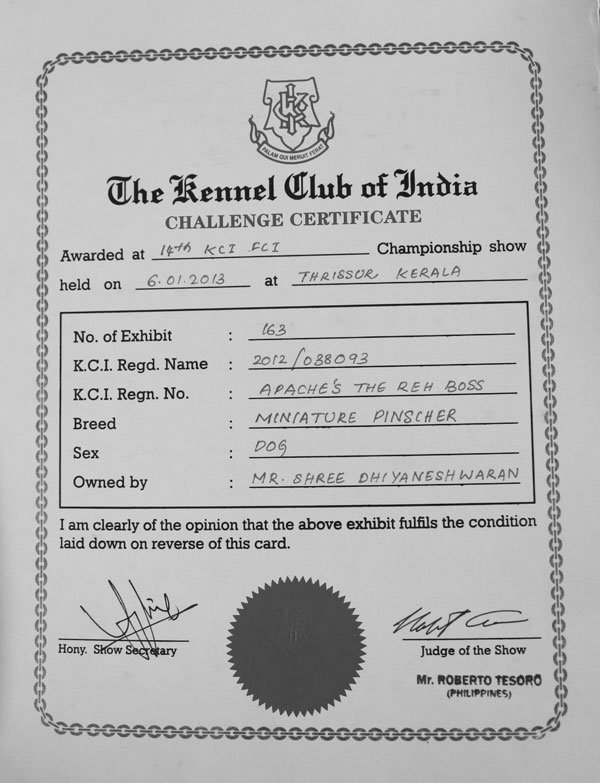 PALAM QUI MERUIT FERAT
The Kennel Club of India
CHALLENGE CERTIFICATE
Awarded at 14th KCI FCI Championship show
held on 6.01.2013 at THRISSUR KERALA
No. of Exhibit : 163
K.C.I. Regd. Name : 2012/038093
K.C.I. Regn. No. : APACHE'S THE REH BOSS
Breed : MINIATURE PINSCHER
Sex : DOG
Owned by : MR. SHREE DHIYANESHWARAN
I am clearly of the opinion that the above exhibit fulfils the condition
laid down on reverse of this card.
Hony. Show Secretary
Judge of the Show
Mr. ROBERTO TESORO
(PHILIPPINES)